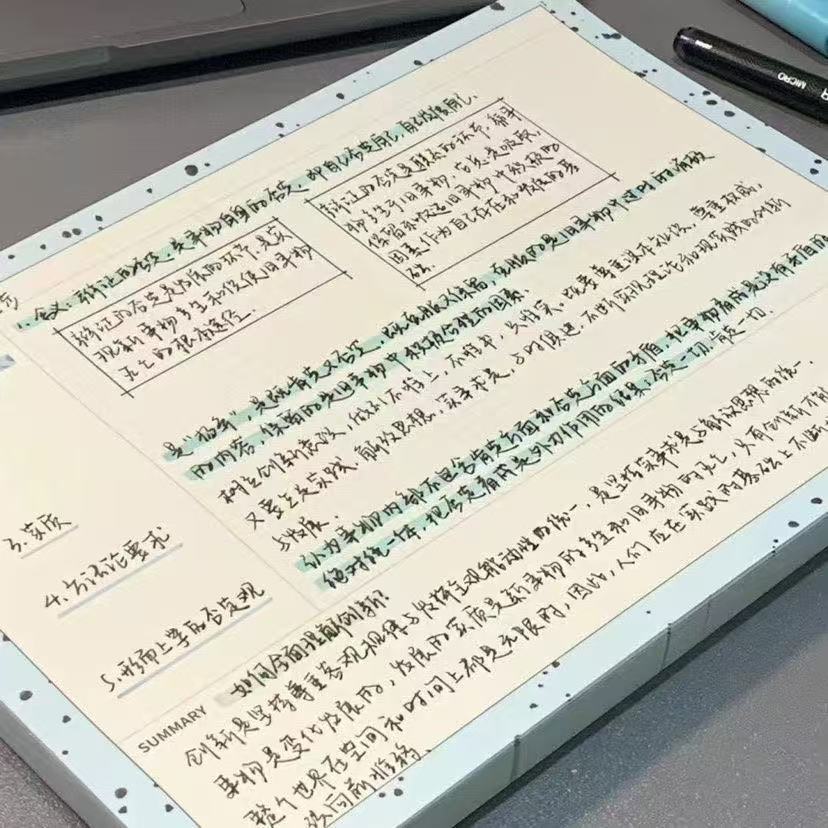 1. 含义：辩证的否定，是事物自身的否定，即自己否定自己，自己发展自己。
辩证的否定是发展的环节，是实
现新事物产生和促使旧事物
灭亡的根本途径。
辩证的否定是联系的环节，新事
物产生于旧事物，它总是吸取、
保留和改造旧事物中积极的
因素，作为自己存在和发展的基
础。
3. 实质
是“扬弃”，是既肯定又否定，既克服又保留，克服的是旧事物中过时的消极
的内容，保留的是旧事物中积极合理的因素。
4. 方法论要求
树立创新意识，做到不唯上，不唯书，只唯实，既要尊重书本知识，尊重权威，
又要立足实践，解放思想，实事求是，与时俱进，不断实现理论和实践的创新
与发展。
5. 形而上学的否定观
认为事物内部不包含肯定方面和否定方面的矛盾，把事物看成是没有矛盾的
绝对统一体，把否定看成是外力作用的结果，否定一切，肯定一切。
SUMMARY
如何全面理解创新？
创新是坚持尊重客观规律与发挥主观能动性的统一，是坚持实事求是与解放思想的统一。
事物是变化发展的，发展的实质是新事物的产生和旧事物的灭亡，只有创新才能
整个世界在空间和时间上都是无限的，因此，人们应在实践的基础上不断
致向前推移。
MICRO